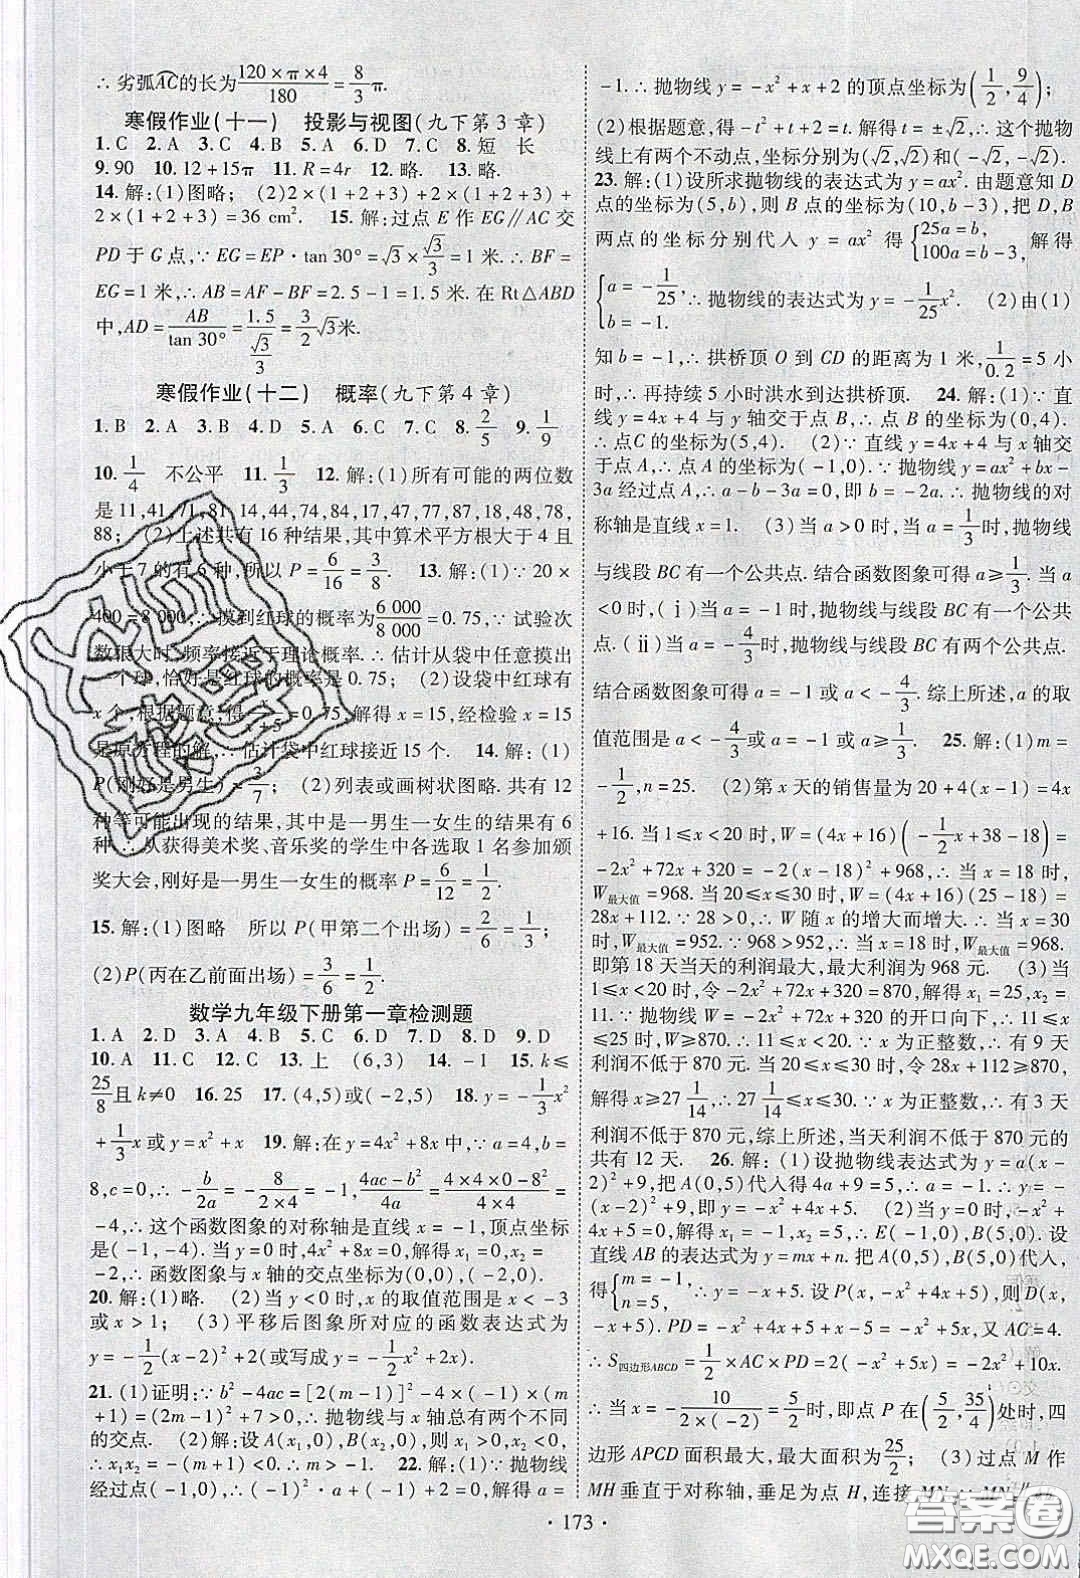 ∴ 劣弧AC的长为(120×π×4)/180=8/3π.
寒假作业(十一) 投影与视图(九下第3章)
1.C 2.A 3.C 4.B 5.A 6.D 7.C 8.短 长
9.90 10.12+15π 11.R=4r 12.略. 13.略.
14.解:(1)图略; (2)2×(1+2+3)+2×(1+2+3)+
2×(1+2+3)=36 cm². 15.解:过点 E 作 EG∥AC 交
PD 于 G 点,∵EG=EP·tan 30°=√3×√3/3=1 米.∴BF=
EG=1 米,∴AB=AF-BF=2.5-1=1.5 米.在 Rt△ABD
中,AD=AB/tan 30°=1.5/(√3/3)=3/2√3米.
寒假作业(十二) 概率(九下第4章)
1.B 2.A 3.B 4.D 5.A 6.D 7.C 8.2/5 9.1/9
10.1/4 不公平 11.1/3 12.解:(1)所有可能的两位数
是 11,41,71,81,14,44,74,84,17,47,77,87,18,48,78,
88; (2)上述共有 16 种结果,其中算术平方根大于 4 且
小于 7 的有 6 种,所以 P=6/16=3/8. 13.解:(1)∵20×
400=8 000,∴摸到红球的概率为6 000/8 000=0.75,∵试验次
数很大时,频率接近于理论概率.∴估计从袋中任意摸出
一个球,恰好是红球的概率是 0.75; (2)设袋中红球有
x 个,根据题意,得x/(x+5)=0.75,解得 x=15,经检验 x=15
是原方程的解,∴估计袋中红球接近 15 个. 14.解:(1)
P(刚好是男生)=3/7; (2)列表或画树状图略.共有 12
种等可能出现的结果,其中是一男生一女生的结果有 6
种,∴从获得美术奖、音乐奖的学生中各选取 1 名参加颁
奖大会,刚好是一男生一女生的概率 P=6/12=1/2.
15.解:(1)图略 所以 P(甲第二个出场)=2/6=1/3;
(2)P(丙在乙前面出场)=3/6=1/2.
数学九年级下册第一章检测题
1.A 2.D 3.D 4.C 5.B 6.D 7.D 8.D 9.D
10.A 11.C 12.C 13.上 (6,3) 14.-1 15.k≤
25/8且 k≠0 16.25 17.(4,5)或(-2,5) 18.y=-1/3x²
+1/3x 或 y=x²+x 19.解:在 y=4x²+8x 中,∵a=4,b=
8,c=0,∴-b/2a=-8/(2×4)=-1,(4ac-b²)/4a=(4×4×0-8²)/(4×4)=
-4,∴这个函数图象的对称轴是直线 x=-1,顶点坐标
是(-1,-4).当 y=0 时,4x²+8x=0,解得 x₁=0,x₂=
-2,∴函数图象与 x 轴的交点坐标为(0,0),(-2,0).
20.解:(1)略. (2)当 y<0 时,x 的取值范围是 x<-3
或 x>1; (3)平移后图象所对应的函数表达式为
y=-1/2(x-2)²+2(或写成 y=-1/2x²+2x).
21.(1)证明:∵b²-4ac=[2(m-1)]²-4×(-1)×(m
+1)=(2m-1)²+7>0,∴抛物线与 x 轴总有两个不同
的交点. (2)解:设 A(x₁,0),B(x₂,0),则 x₁x₂<0,
∴x₁x₂=-(m+1)<0,∴m>-1. 22.解:(1)∵抛物线
经过点(-1,0),∴(-1)²·a+(-1)+2=0,解得 a=
-1.∴抛物线 y=-x²+x+2 的顶点坐标为(1/2,9/4);
(2)根据题意,得-t²+t+2=t.解得 t=±√2,∴这个抛物
线上有两个不动点,坐标分别为(√2,√2)和(-√2,-√2).
23.解:(1)设所求抛物线的表达式为 y=ax².由题意知 D
点的坐标为(5,b),则 B 点的坐标为(10,b-3),把 D,B
两点的坐标分别代入 y=ax² 得{25a=b, 100a=b-3,解得
{a=-1/25, b=-1.∴抛物线的表达式为 y=-1/25x². (2)由(1)
知 b=-1,∴拱桥顶 O 到 CD 的距离为 1 米,1/0.2=5 小
时.∴再持续 5 小时洪水到达拱桥顶. 24.解:(1)∵直
线 y=4x+4 与 y 轴交于点 B,∴点 B 的坐标为(0,4).
∴点C 的坐标为(5,4). (2)∵直线 y=4x+4 与 x 轴交
于点 A,∴点 A 的坐标为(-1,0).∵抛物线 y=ax²+bx-
3a 经过点 A,∴a-b-3a=0,即 b=-2a.∴抛物线的对
称轴是直线 x=1. (3)当 a>0 时,当 a=1/3时,抛物线
与线段 BC 有一个公共点.结合函数图象可得 a≥1/3.当 a
<0 时,(ⅰ)当 a=-1 时,抛物线与线段 BC 有一个公共
点.(ⅱ)当 a=-4/3时,抛物线与线段 BC 有两个公共点.
结合函数图象可得 a=-1 或 a<-4/3.综上所述,a 的取
值范围是 a<-4/3或 a=-1 或 a≥1/3. 25.解:(1)m=
-1/2,n=25. (2)第 x 天的销售量为 20+4(x-1)=4x
+16.当 1≤x<20 时,W=(4x+16)(-1/2x+38-18)=
-2x²+72x+320=-2(x-18)²+968,∴当 x=18 时,
W最大值=968.当 20≤x≤30 时,W=(4x+16)(25-18)=
28x+112.∵28>0,∴W 随 x 的增大而增大.∴当 x=30
时,W最大值=952.∵968>952,∴当 x=18 时,W最大值=968.
即第 18 天当天的利润最大,最大利润为 968 元. (3)当
1≤x<20 时,令-2x²+72x+320=870,解得 x₁=25,x₂=
11.∵抛物线 W=-2x²+72x+320 的开口向下,∴11≤
x≤25 时,W≥870.∴11≤x<20.∵x 为正整数,∴有 9 天
利润不低于 870 元.当 20≤x≤30 时,令 28x+112≥870,
解得 x≥27 1/14,∴27 1/14≤x≤30.∵x 为正整数,∴有 3 天
利润不低于 870 元,综上所述,当天利润不低于 870 元的
共有 12 天. 26.解:(1)设抛物线表达式为 y=a(x-
2)²+9,把 A(0,5)代入得 4a+9=5,∴a=-1,∴y=-
(x-2)²+9,即 y=-x²+4x+5. (2)当 y=0 时,-x²+
4x+5=0,解得 x₁=-1,x₂=5,∴E(-1,0),B(5,0).设
直线 AB 的表达式为 y=mx+n.把 A(0,5),B(5,0)代入,
得{m=-1, n=5, ∴y=-x+5.设 P(x,-x²+4x+5),则D(x,
-x+5).PD=-x²+4x+5+x-5=-x²+5x,又 AC=4.
∴S四边形APCD=1/2×AC×PD=2(-x²+5x)=-2x²+10x.
∴当 x=-10/(2×(-2))=5/2时,即点 P 在(5/2,35/4)处时,四
边形 APCD 面积最大,最大面积为25/2; (3)过点 M 作
MH 垂直于对称轴,垂足为点 H,连接
· 173 ·
答案圈
MXQE.COM